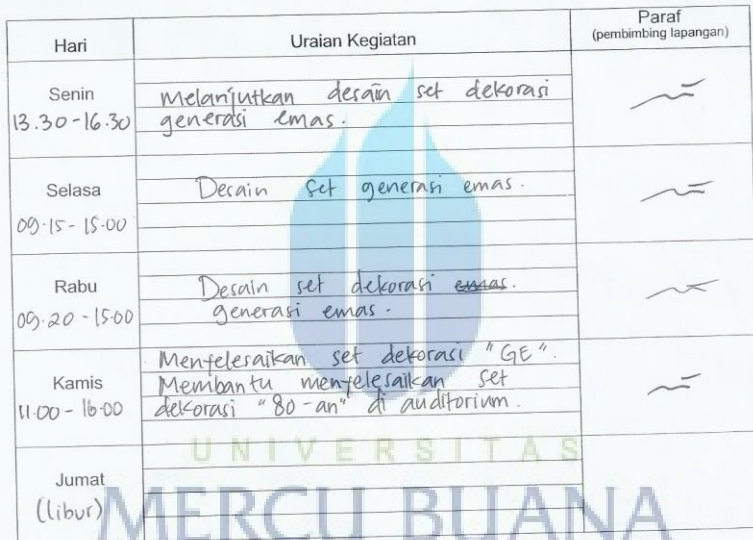 Hari Uraian Kegiatan Paraf
(pembimbing lapangan)
Senin
13.30-16.30
Melanjutkan desain set dekorasi
generasi emas.
Selasa
09.15 - 15.00
Desain set generasi emas.
Rabu
09.20 - 15.00
Desain set dekorasi emas.
generasi emas.
Kamis
11.00 - 16.00
Menyelesaikan set dekorasi "GE".
Membantu menyelesaikan set
dekorasi "80-an" di auditorium.
Jumat
(libur)
UNIVERSITAS
MERCU BUANA